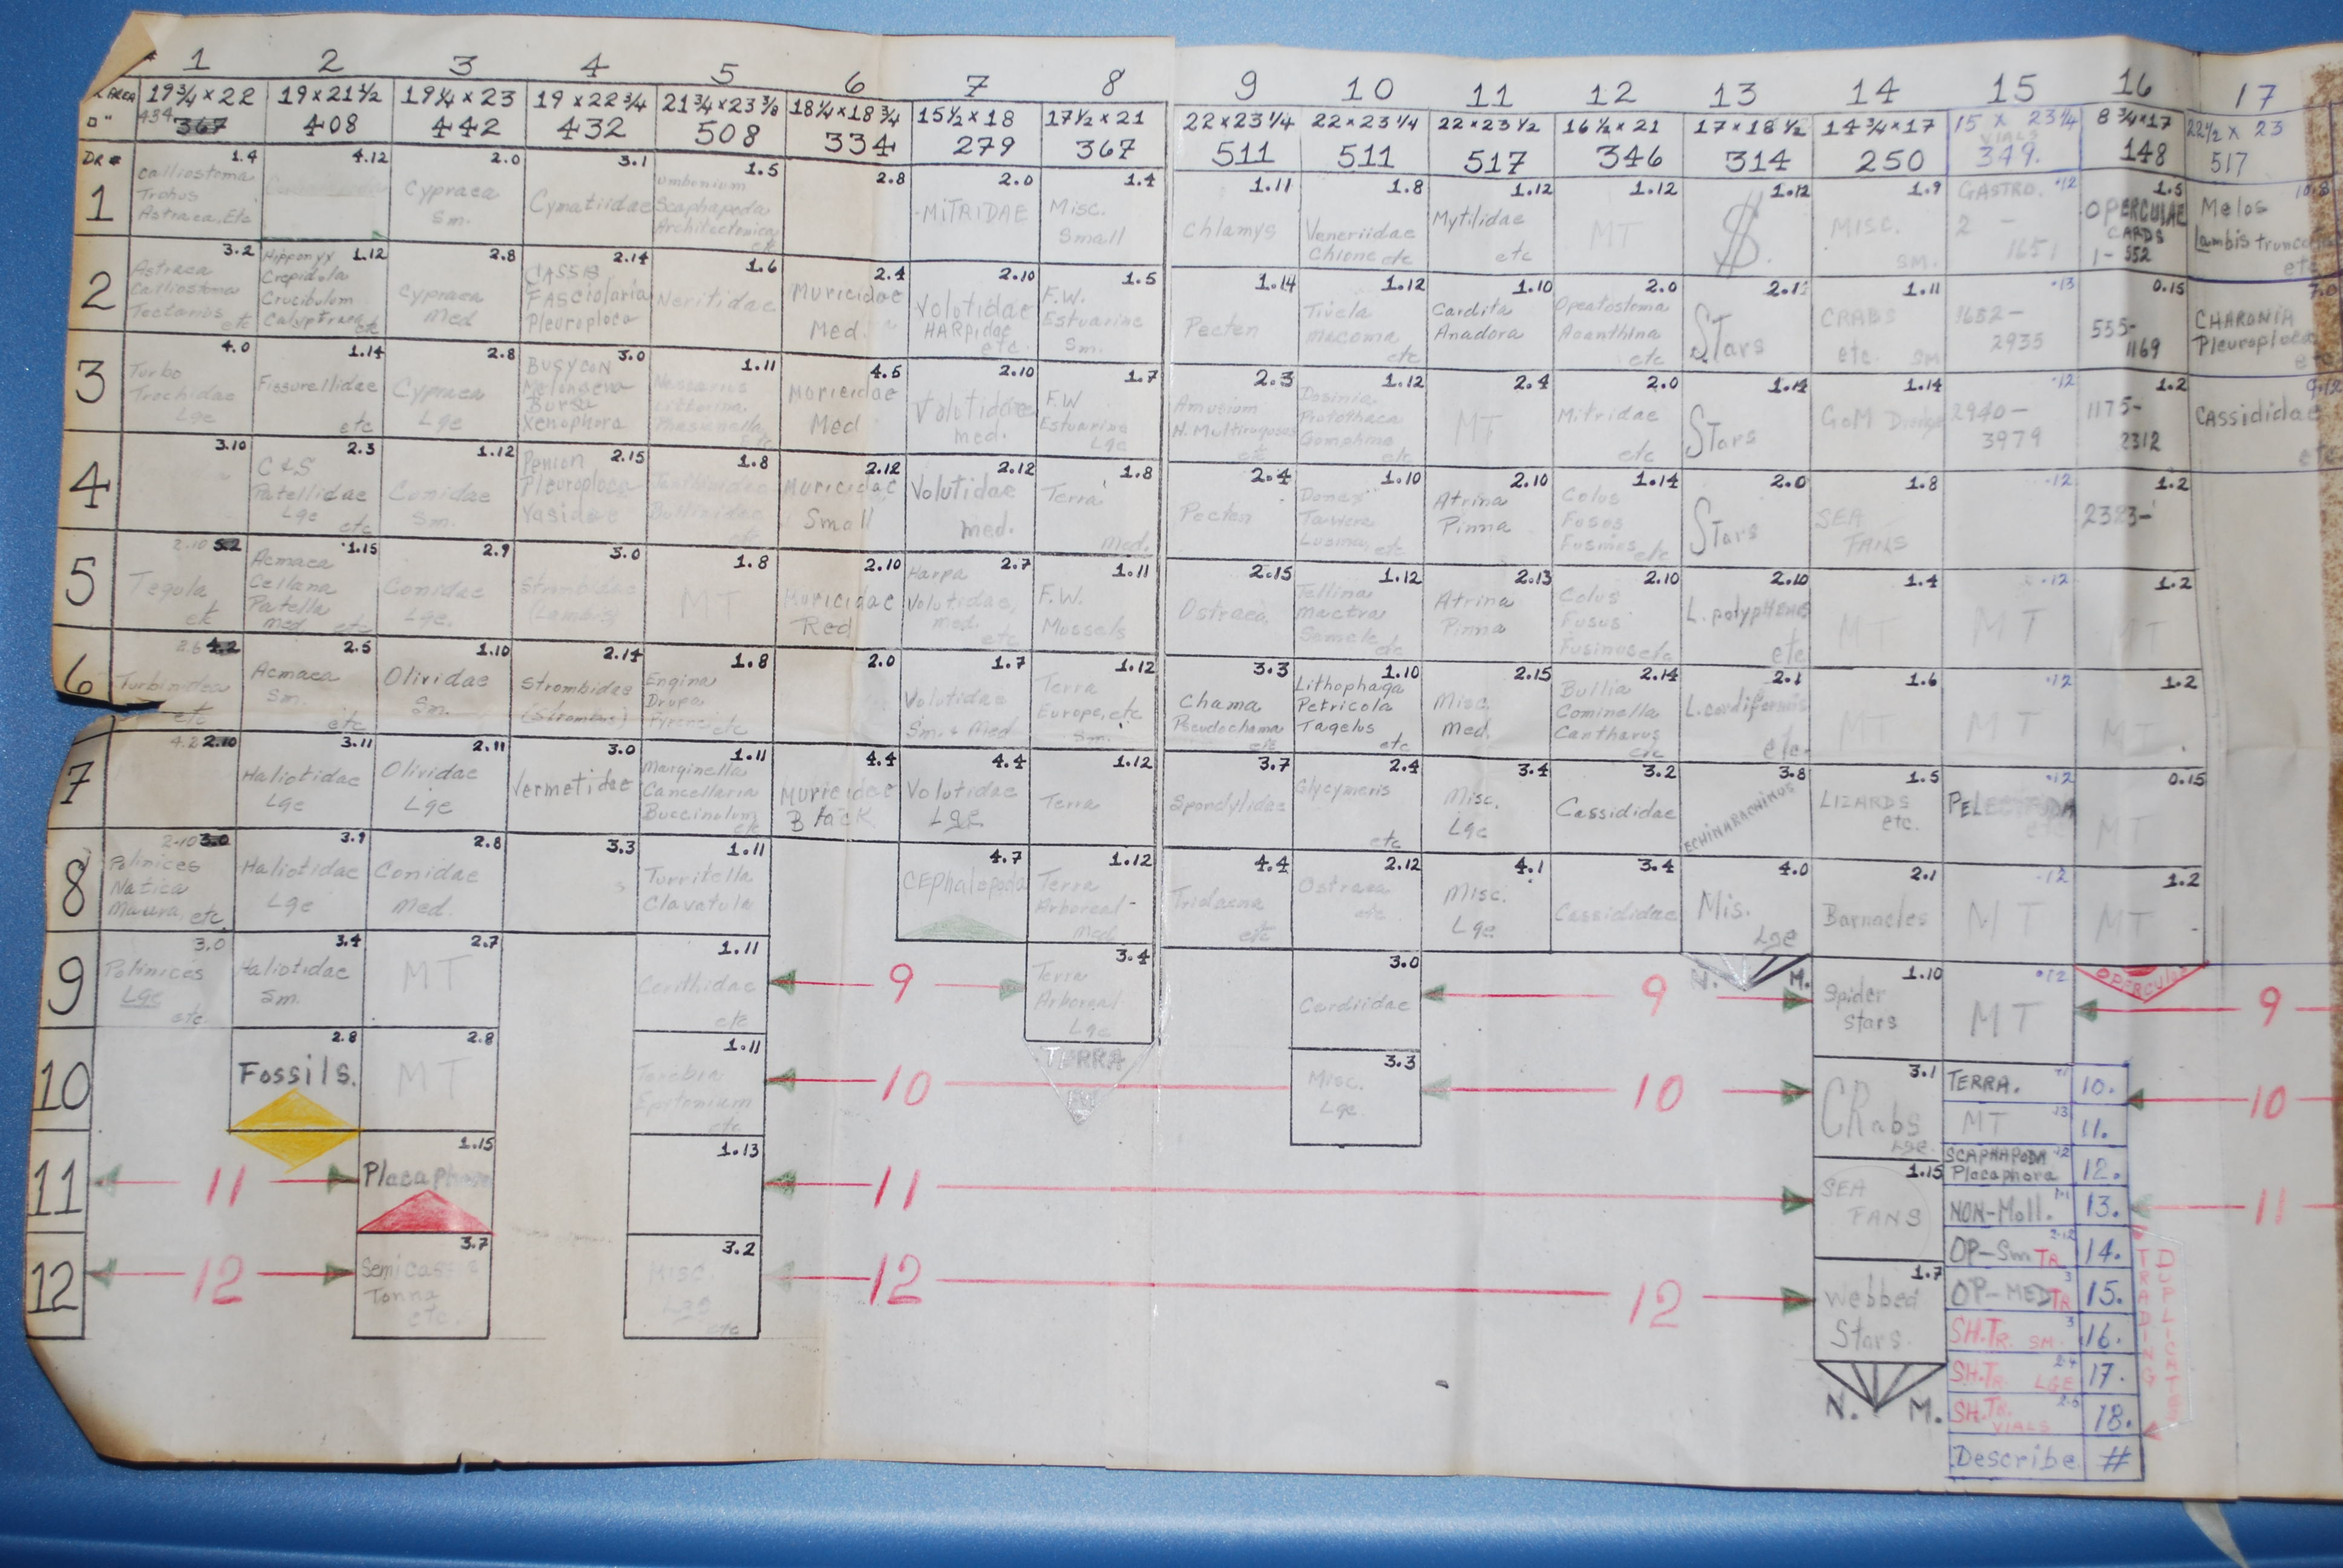 1 2 3 4 5 6 7 8 9 10 11 12 13 14 15 16 17
AREA 19 3/4 × 22 19 × 21 1/2 19 1/4 × 23 19 × 22 3/4 21 3/4 × 23 3/8 18 1/4 × 18 3/4 15 1/2 × 18 17 1/2 × 21 22 × 23 1/4 22 × 23 1/4 22 × 23 1/2 16 1/2 × 21 17 × 18 1/2 14 3/4 × 17 15 × 23 1/4 8 3/4 × 17 22 1/2 × 23
□" 434 367 408 442 432 508 334 279 367 511 511 517 346 314 250 VIALS 349. 148 517
DR #
1
1.4 4.12 2.0 3.1 1.5 2.8 2.0 1.4 1.11 1.8 1.12 1.12 1.12 1.9 .12 1.5 10.8
Calliostoma
Trohus
Astraea, Etc
Cypraea
Sm.
Cymatiidae
Umbonium
Scaphapoda
Architectonica
etc
MITRIDAE
Misc.
Small
Chlamys
Veneriidae
Chione etc
Mytilidae
etc
MT
$.
MISC.
SM.
GASTRO.
2 -
1651
OPERCULAE
CARDS
1- 552
Melos
Lambis truncata
etc
2
3.2 1.12 2.8 2.14 1.6 2.4 2.10 1.5 1.14 1.12 1.10 2.0 2.11 1.11 .13 0.15 7.0
Astraea
Calliostoma
Tectarius
etc
Hipponyx
Crepidula
Crucibulum
Calyptraea etc
Cypraea
Med
CASSIS
FASciolaria
Pleuroploca
Neritidae
Muricidae
Med.
Volutidae
HARPidae
etc.
F.W.
Estuarine
Sm.
Pecten
Tivela
macoma
etc
Cardita
Anadora
Opeatostoma
Acanthina
etc
Stars
CRABS
etc. SM
1652-
2935
555-
1169
CHARONIA
Pleuroploca
etc
3
4.0 1.14 2.8 3.0 1.11 4.5 2.10 1.7 2.3 1.12 2.4 2.0 1.14 1.14 .12 1.2 9.12
Turbo
Trochidae
Lge
Fissurellidae
etc
Cypraea
Lge
BUSYCON
Melongena
Bursa
Xenophora
Nassarius
Littorina
etc
Muricidae
Med
Volutidae
med.
F.W
Estuarine
Lge
Amusium
N. Multirugosus
etc
Dosinia
Protothaca
Gomphina
etc
MT
Mitridae
etc
Stars
GoM Dredge
2940-
3979
1175-
2312
CASSididae
etc
4
3.10 2.3 1.12 2.15 1.8 2.12 2.12 1.8 2.4 1.10 2.10 1.14 2.0 1.8 .12 1.2
C & S
Patellidae
Lge etc
Conidae
Sm.
Penion
Pleuroploca
Vasidae
etc
Muricidae
Small
Volutidae
med.
Terra
Med.
Pecten
Donax
Tawera
Lucina, etc
Atrina
Pinna
Colus
Fusus
Fusinus etc
Stars
SEA
FANS
2323-
5
2.10 5.2 1.15 2.9 3.0 1.8 2.10 2.7 1.11 2.15 1.12 2.13 2.10 2.10 1.4 .12 1.2
Tegula
etc
Acmaea
Cellana
Patella
med etc
Conidae
Lge.
Strombidae
(Lambis)
MT
Muricidae
Red
Harpa
Volutidae,
med.
etc
F.W.
Mussels
Ostraea
Tellina
Mactra
Semele
etc
Atrina
Pinna
Colus
Fusus
Fusinus etc
L. polyphemus
etc
MT
MT
MT
6
2.5 4.2 2.5 1.10 2.14 1.8 2.0 1.7 1.12 3.3 1.10 2.15 2.14 2.1 1.6 .12 1.2
Turbinidea
etc
Acmaea
Sm.
etc
Olividae
Sm.
Strombidae
(Strombus)
Engina
Drupa
Pyrene etc
Volutidae
Sm. & Med
Terra
Europe, etc
Sm.
Chama
Pseudochama
etc
Lithophaga
Petricola
Tagelus
etc
Misc.
Med.
Bullia
Cominella
Cantharus
etc
L. cordiformis
etc.
MT
MT
MT
7
4.2 2.10 3.11 2.11 3.0 1.11 4.4 4.4 1.12 3.7 2.4 3.4 3.2 3.8 1.5 .12 0.15
Haliotidae
Lge
Olividae
Lge
Vermetidae
Marginella
Cancellaria
Buccinolum
etc
Muricidae
Black
Volutidae
Lge
Terra
Spondylidae
Glycymeris
etc
Misc.
Lge
Cassididae
ECHINARACHINUS
LIZARDS
etc.
PELECYPODA
etc
MT
8
2.10 3.0 3.9 2.8 3.3 1.11 4.7 1.12 4.4 2.12 4.1 3.4 4.0 2.1 .12 1.2
Polinices
Natica
Maura, etc
Haliotidae
Lge
Conidae
Med.
Turritella
Clavatula
CEPhalopoda
Terra
Arboreal-
Med
Tridacna
etc
Ostraea
etc.
Misc.
Lge
Cassididae
Mis.
Lge
Barnacles
MT
MT
9
3.0 3.4 2.7 1.11 3.4 3.0 1.10 .12
Polinices
Lge
etc.
Haliotidae
Sm.
MT
Cerithidae
etc
9
Terra
Arboreal
Lge
Cardiidae
9
N. M.
Spider
Stars
MT
OPERCULAE
9
10
2.8 2.8 1.11 3.3 3.1
Fossils.
MT
Terebra
Epitonium
etc
10
TERRA
Misc.
Lge.
10
CRabs
Lge.
TERRA. 10.
MT .13 11.
10
11
11
1.15
Placaphora
1.13
11
1.15
SEA
FANS
SCAPHAPODA .12
Placaphora 12.
NON-Moll. 13.
11
12
12
3.7
Semicassis
Tonna
etc.
3.2
MISC.
Lge
etc
12
12
1.7
Webbed
Stars.
N. M.
OP-Sm TR 14.
OP-MED TR 3 15.
SH.TR. SM. 3 16.
SH.TR. LGE 2.4 17.
SH.TR. VIALS 18.
Describe #
TRADING
DUPLICATES